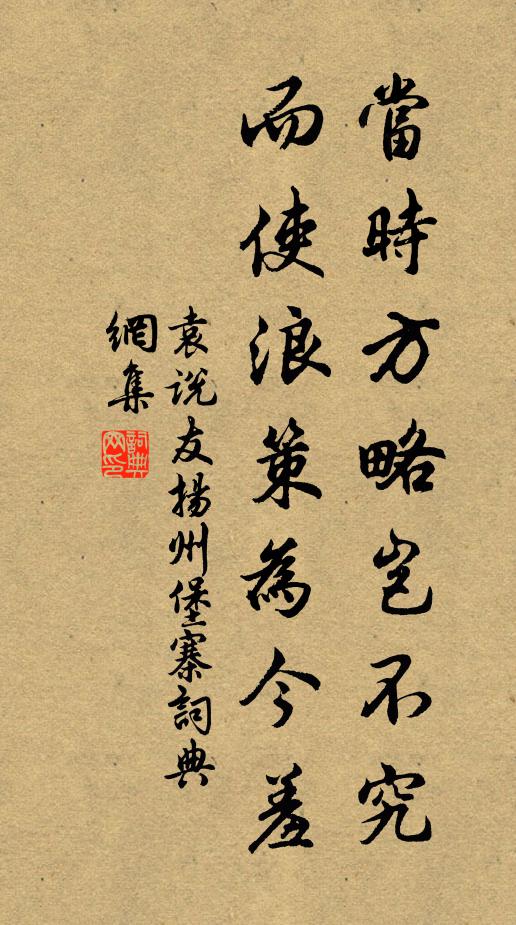 當時方略豈不究
而使浪策為今羞
袁说友揚州堡寨詞典
網集
詞典網印